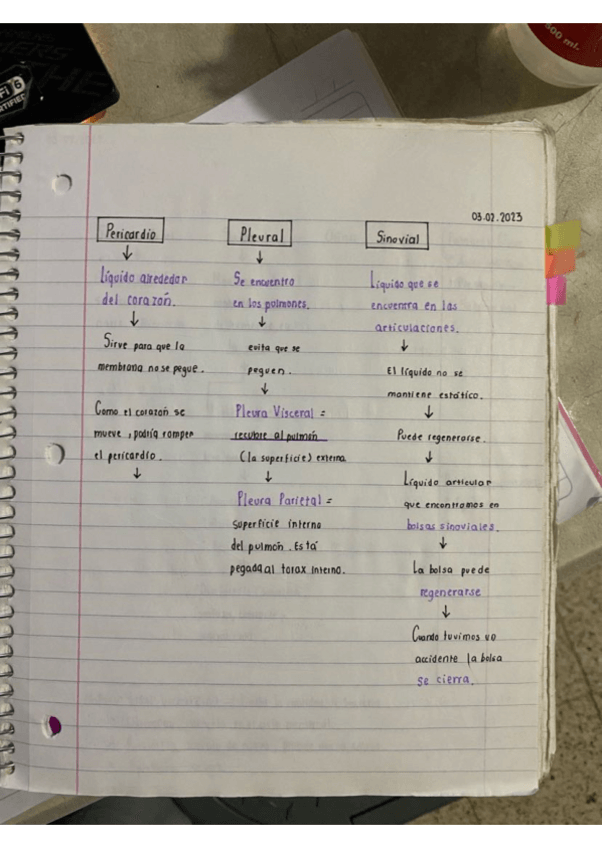 500 ml.
Fi 6
CERTIFIED
03.02.2023
Pericardio
Líquido alrededor
del corazón.
Sirve para que la
membrana no se pegue.
Como el corazón se
mueve, podría romper
el pericardio.
Pleural
Se encuentra
en los pulmones.
evita que se
peguen.
Pleura Visceral =
recubre al pulmón
(la superficie) externa
Pleura Parietal =
superficie interna
del pulmón. Está
pegada al torax interno.
Sinovial
Líquido que se
encuentra en las
articulaciones.
El líquido no se
mantiene estático.
Puede regenerarse.
Líquido articular
que encontramos en
bolsas sinoviales.
La bolsa puede
regenerarse
Cuando tuvimos un
accidente la bolsa
se cierra.